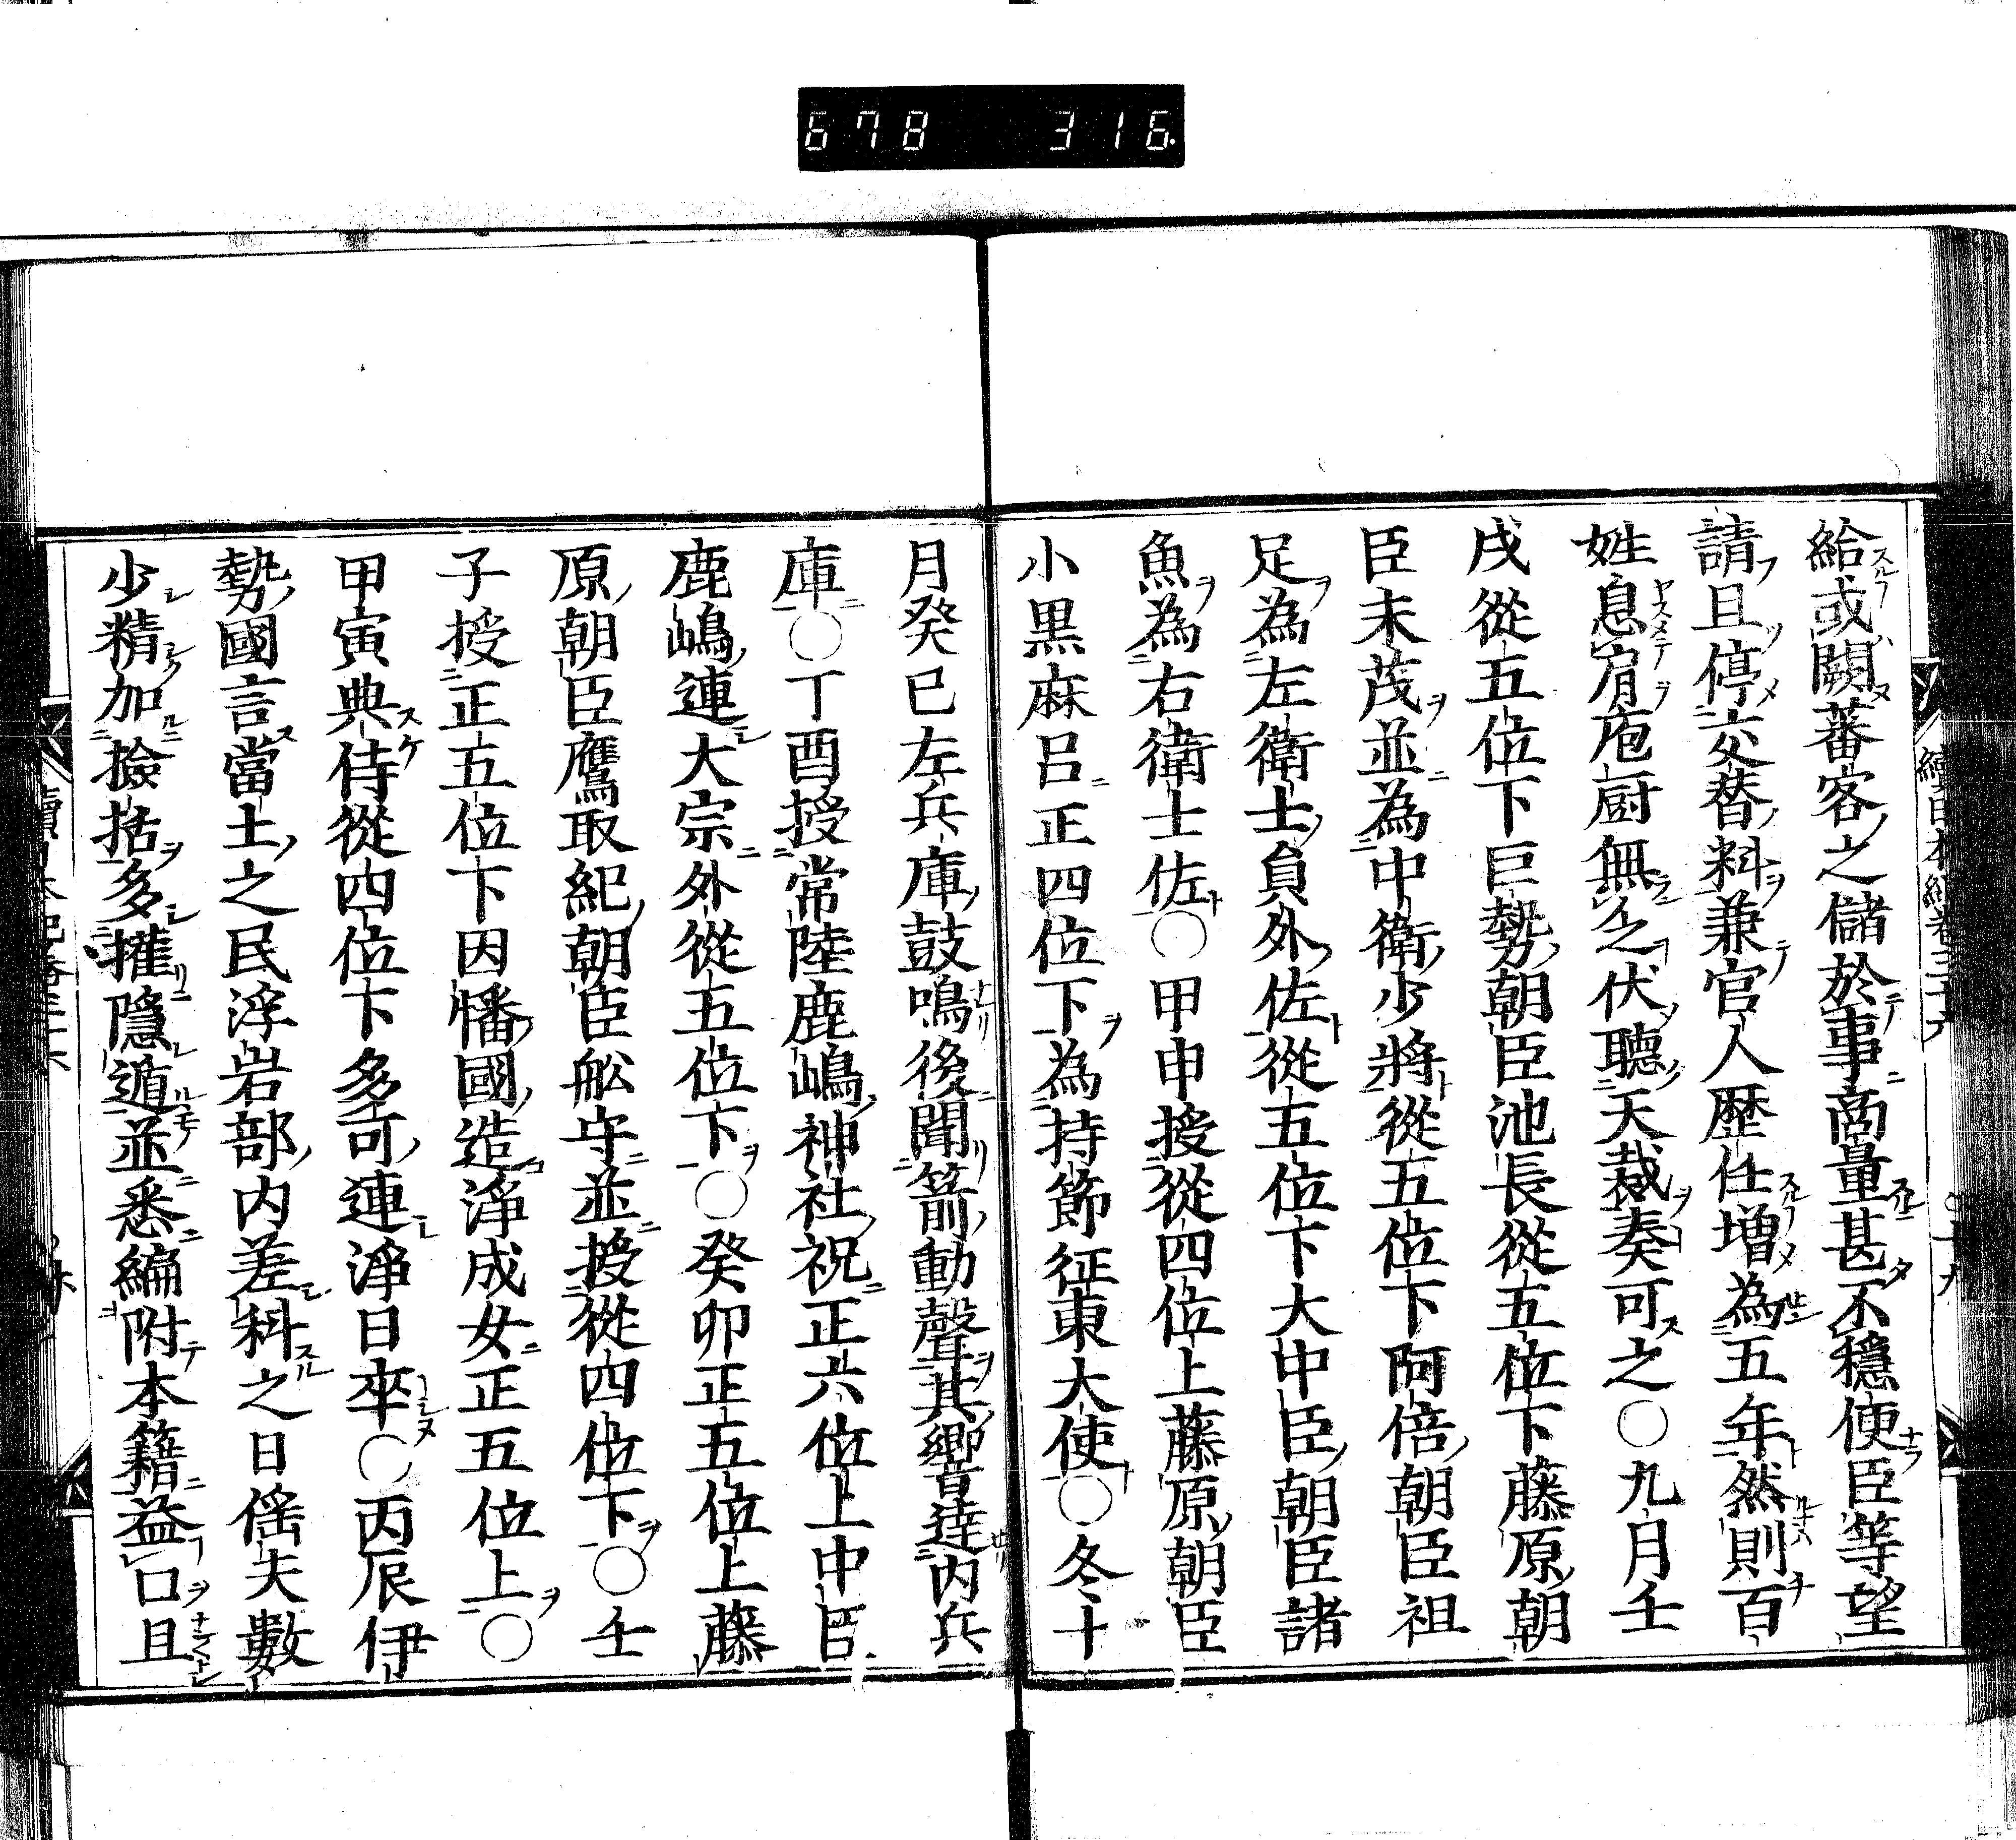 678 316
給或闕蕃客之儲於事商量甚不穩便臣等望
請且停交替料兼官人歷任增為五年然則百
姓息肩庖厨無乏伏聽天裁奏可之○九月壬
戌從五位下巨勢朝臣池長從五位下藤原朝
臣末茂並為中衛少將從五位下阿倍朝臣祖
足為左衛士員外佐從五位下大中臣朝臣諸
魚為右衛士佐○甲申授從四位上藤原朝臣
小黒麻呂正四位下為持節征東大使○冬十
月癸巳左兵庫鼓鳴後聞箭動聲其響達内兵
庫○丁酉授常陸鹿嶋神社祝正六位上中臣
鹿嶋連大宗外從五位下○癸卯正五位上藤
原朝臣鷹取紀朝臣舩守並授從四位下○壬
子授正五位下因幡國造淨成女正五位上○
甲寅典侍從四位下多可連淨日卒○丙辰伊
勢國言當土之民浮宕部内差科之日徭夫數
少精加撿括多攉隱遁並悉編附本籍益口且